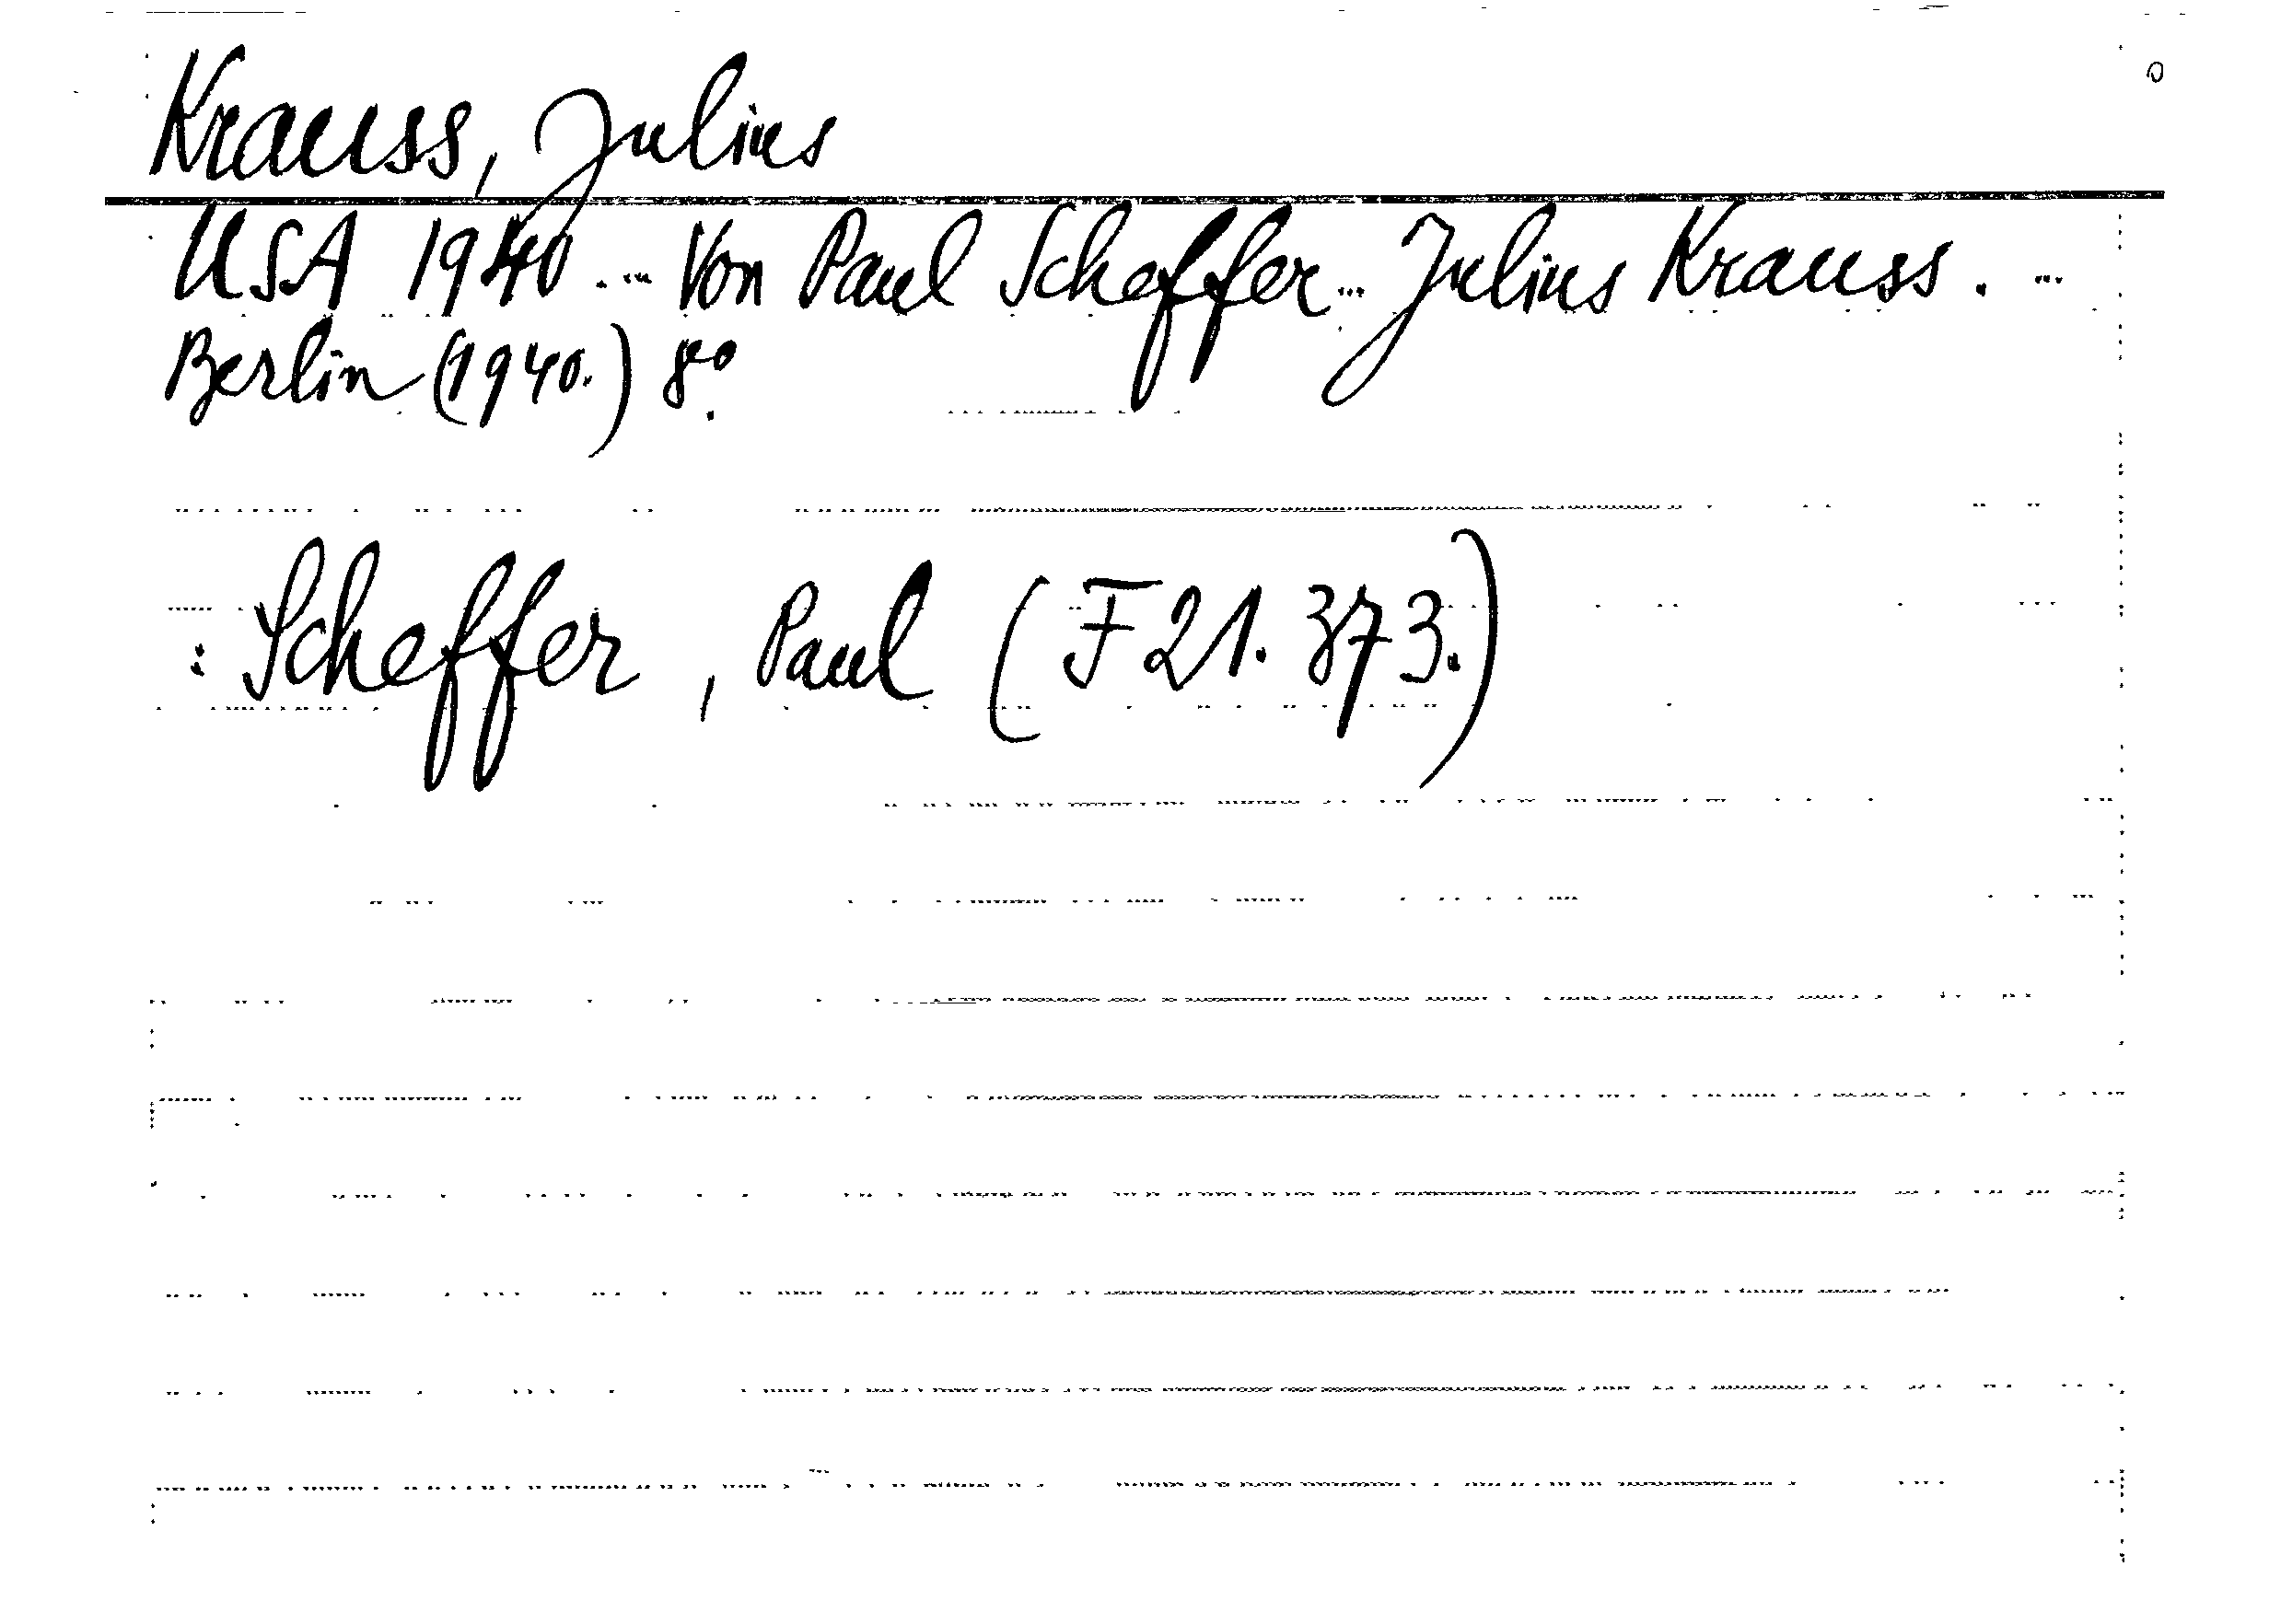 Krauss, Julius
USA 1940. ... Von Paul Scheffer ... Julius Krauss. ...
Berlin (1940.) 8°.
: Scheffer, Paul (F 21. 373.)